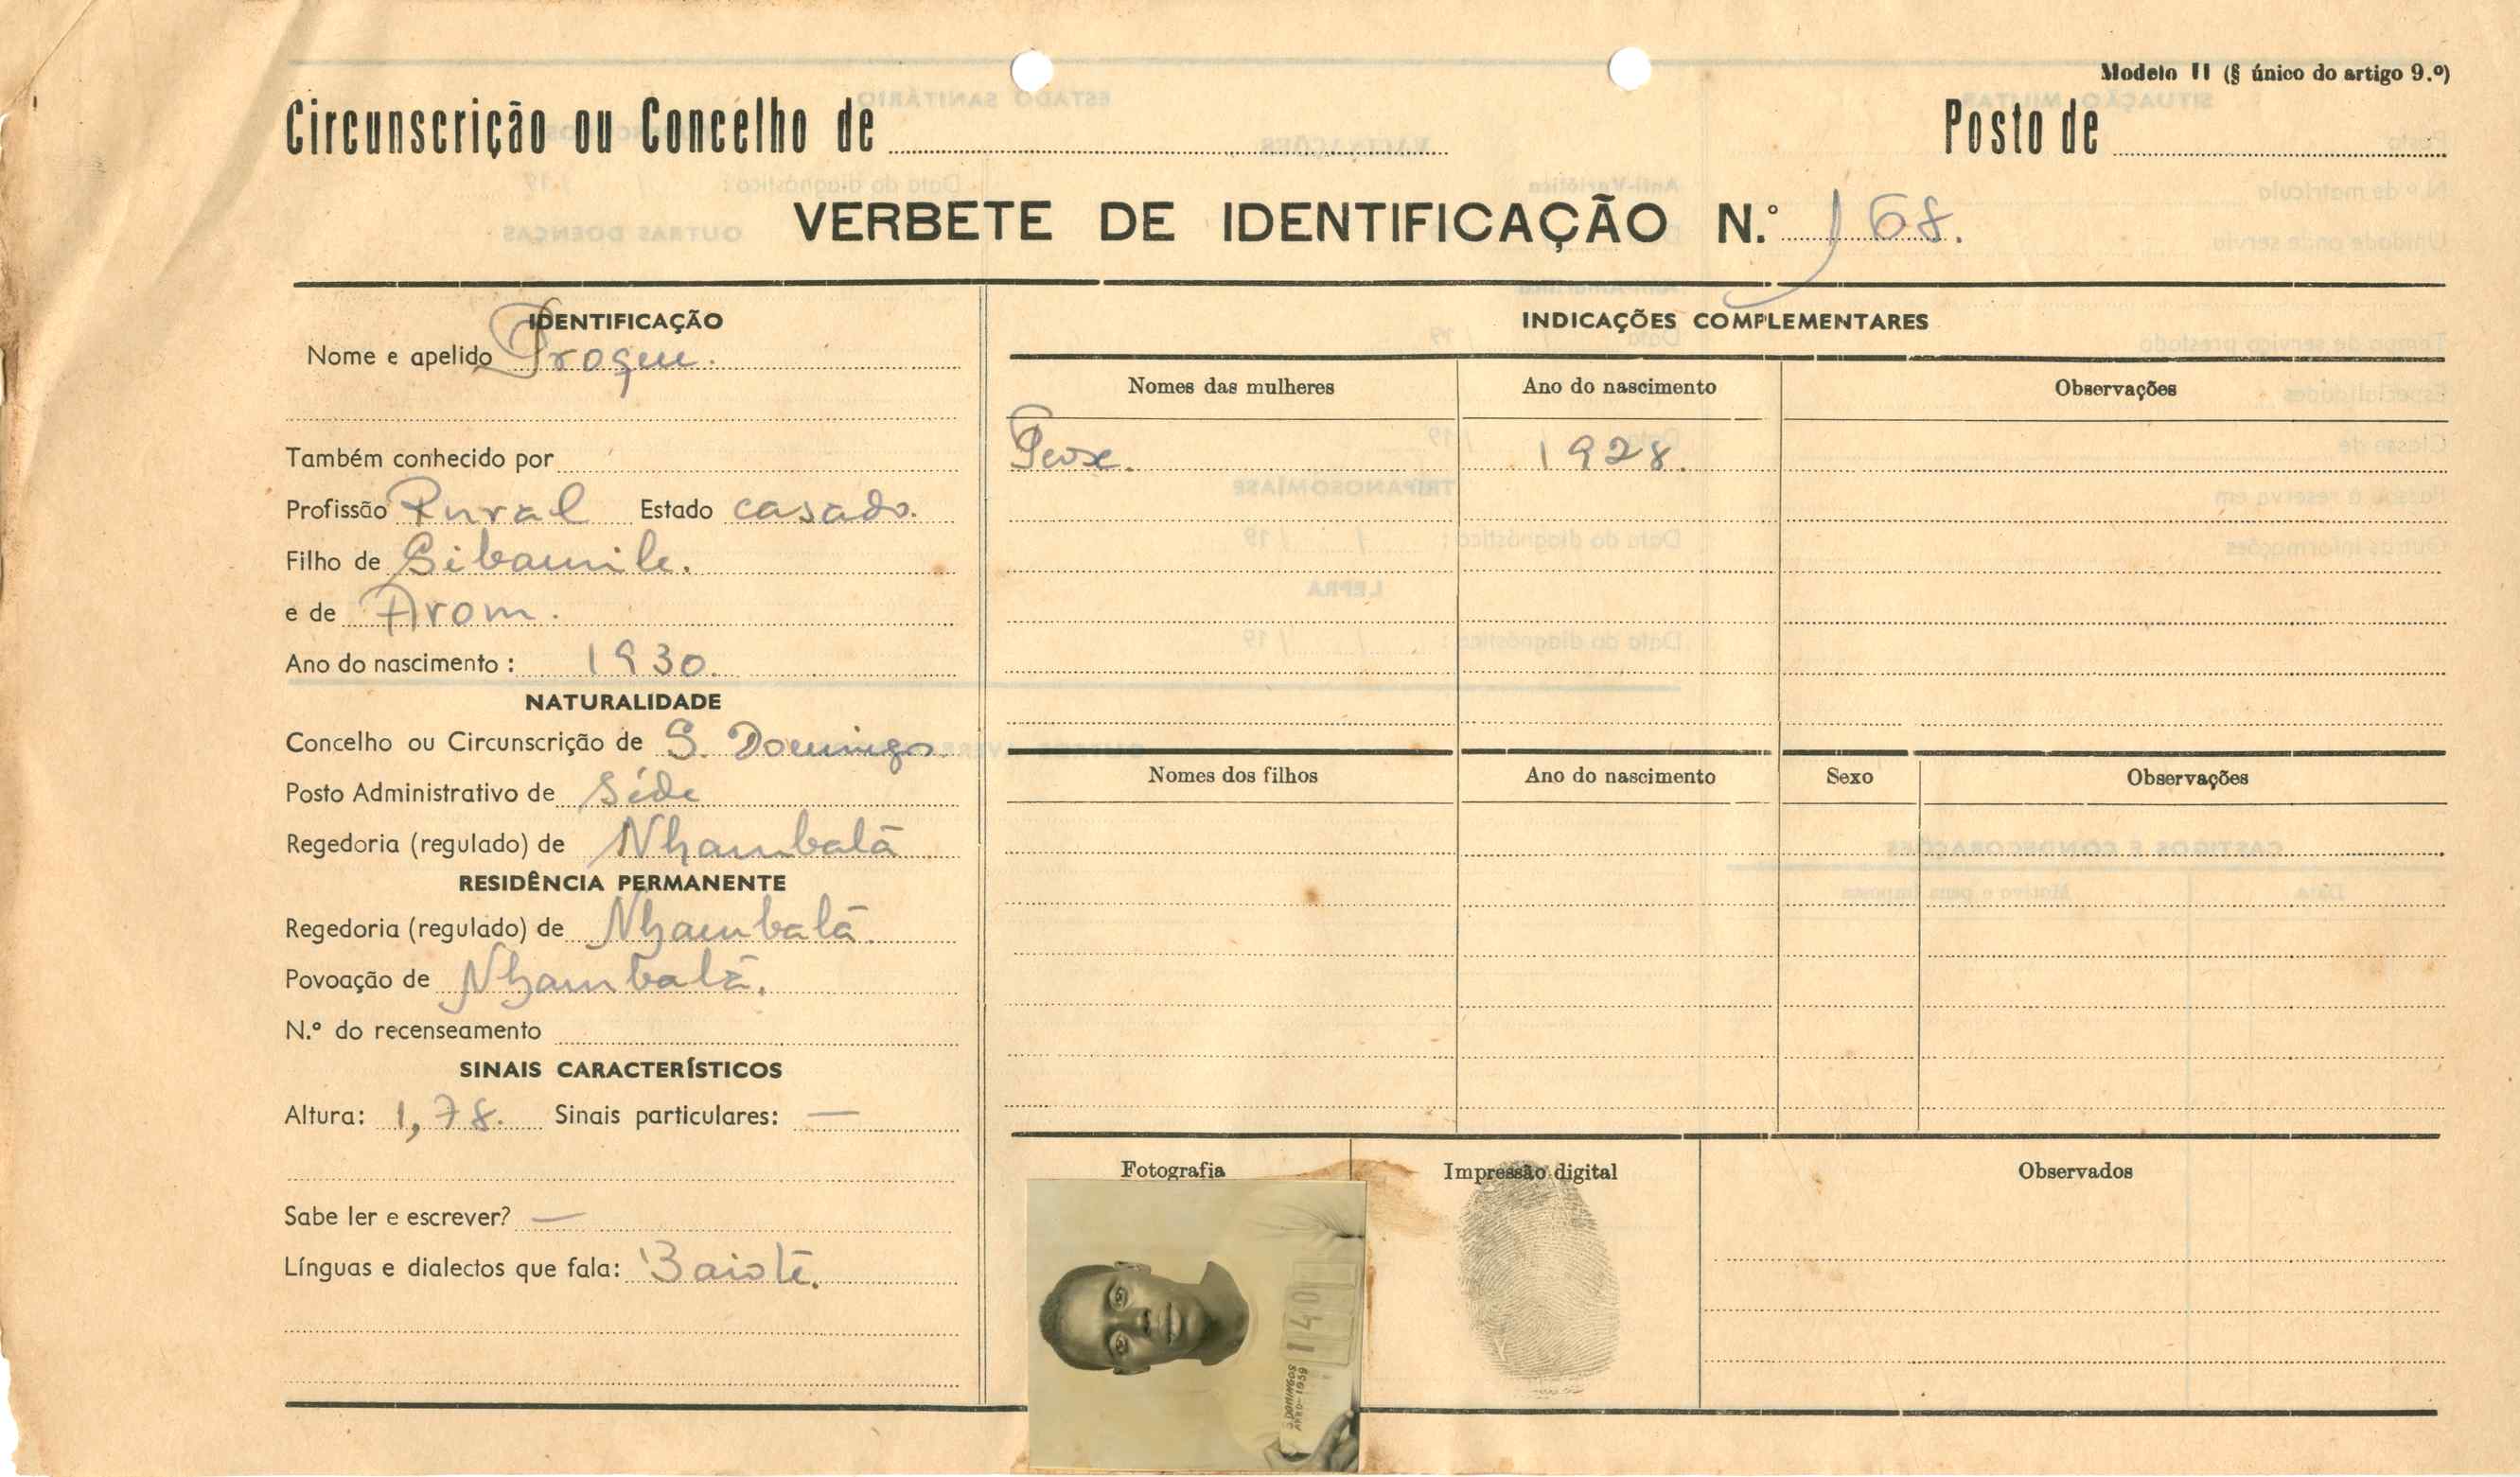 Modelo II (§ único do artigo 9.º)
Circunscrição ou Concelho de
Posto de
VERBETE DE IDENTIFICAÇÃO N.º 168.
IDENTIFICAÇÃO
Nome e apelido Proqu.
Também conhecido por
Profissão Rural Estado casado.
Filho de Sibaunile.
e de Arom.
Ano do nascimento: 1930.
NATURALIDADE
Concelho ou Circunscrição de S. Domingo
Posto Administrativo de Séde
Regedoria (regulado) de Nhambalã
RESIDÊNCIA PERMANENTE
Regedoria (regulado) de Nhambalã
Povoação de Nhambalã.
N.º do recenseamento
SINAIS CARACTERÍSTICOS
Altura: 1,78. Sinais particulares: —
Sabe ler e escrever? —
Línguas e dialectos que fala: Baiote.
INDICAÇÕES COMPLEMENTARES
Nomes das mulheres Ano do nascimento Observações
1928.
Nomes dos filhos Ano do nascimento Sexo Observações
Fotografia Impressão digital Observados
1401
S. DOMINGOS
1959